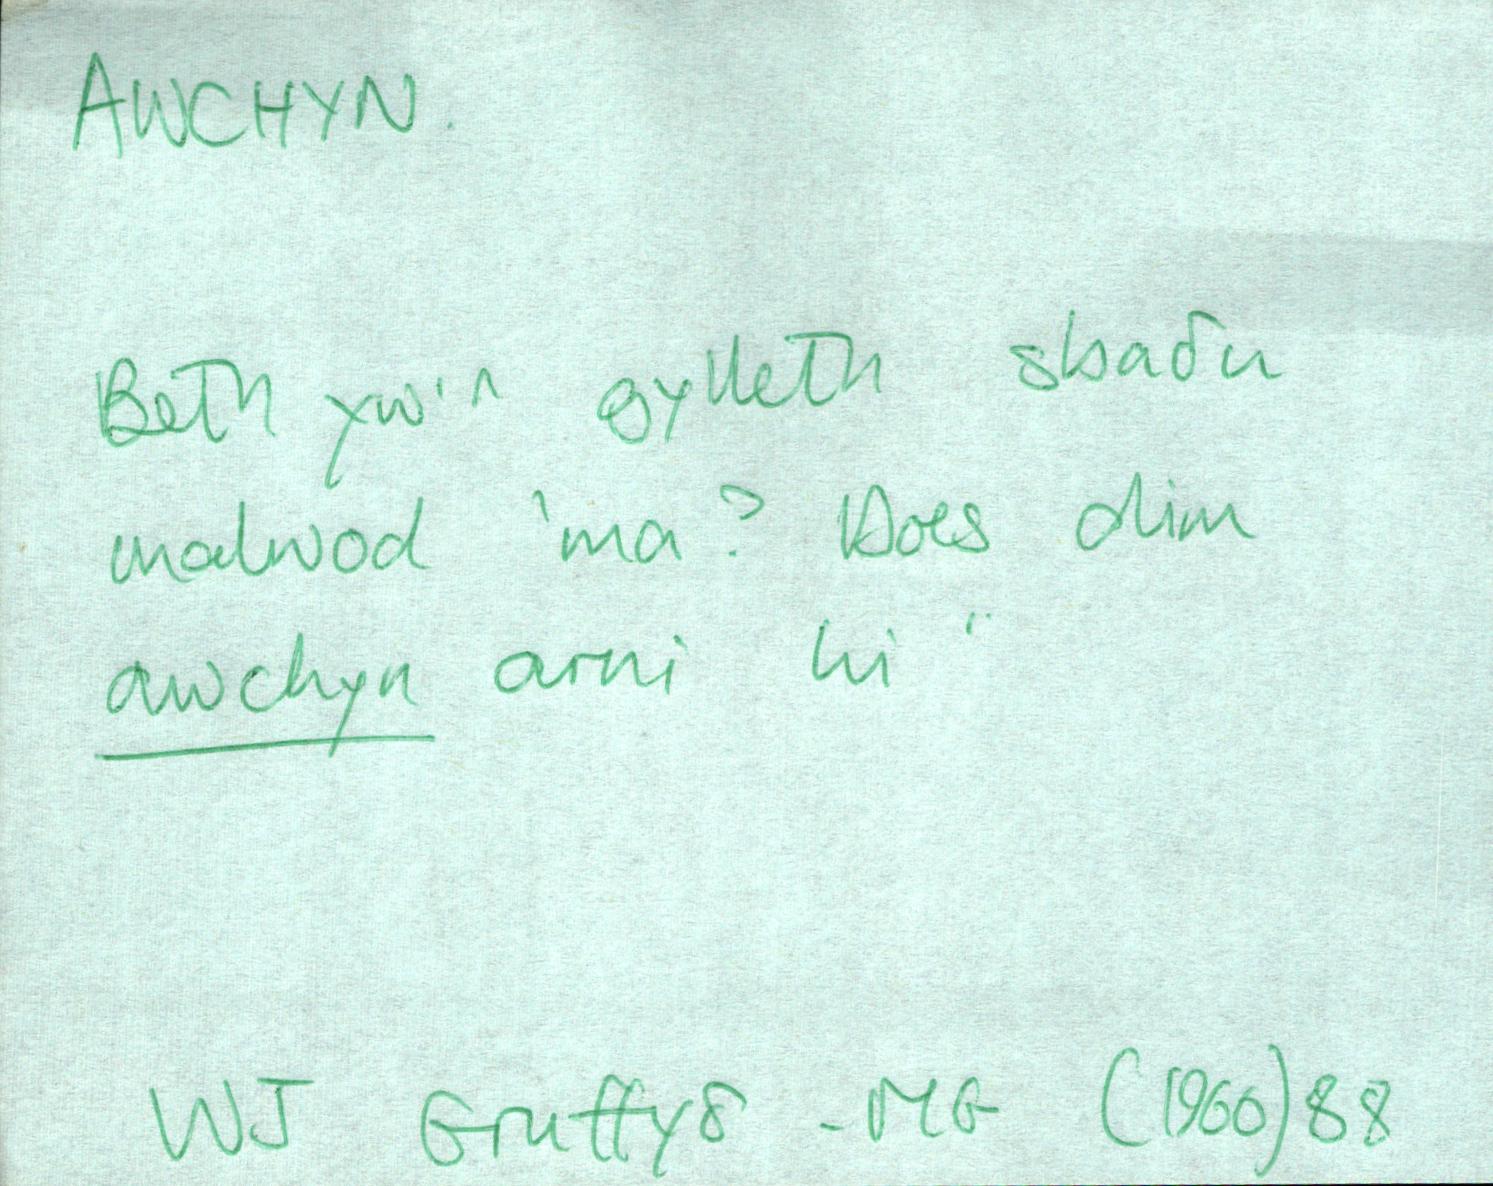 AWCHYN.
Beth yw'r gylleth sbaðu
malwod 'ma? Does dim
awchyn arni hi"
WJ Gruffyð - MG (1960) 88